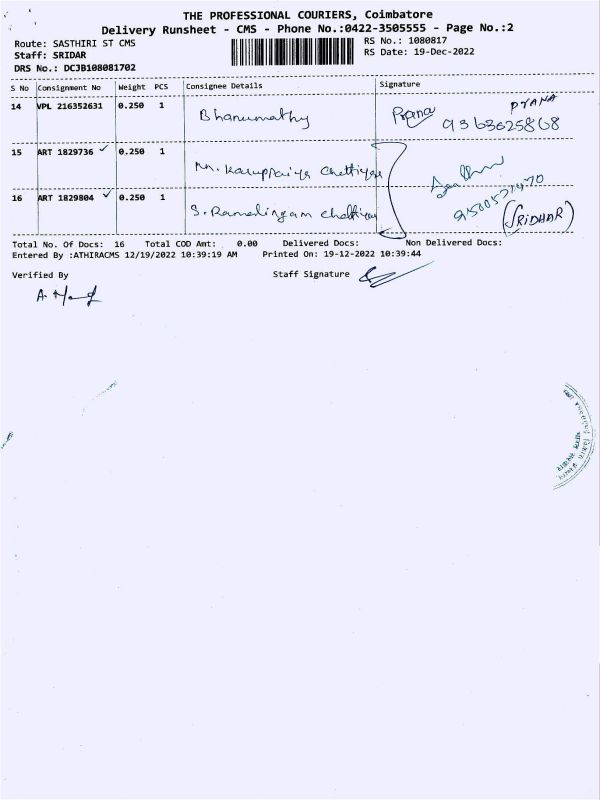 THE PROFESSIONAL COURIERS, Coimbatore
Delivery Runsheet - CMS - Phone No.:0422-3505555 - Page No.:2
Route: SASTHIRI ST CMS
RS No.: 1080817
Staff: SRIDAR
RS Date: 19-Dec-2022
DRS No.: DCJB108081702
S No Consignment No Weight PCS Consignee Details Signature
14 VPL 216352631 0.250 1 Bhanumathy Prana PYANA
9363625868
15 ART 1829736 ✓ 0.250 1 M. Karuppaiya Chettiyar
16 ART 1829804 ✓ 0.250 1 S. Ramalingam chettiyar
(SRIDHAR)
Total No. Of Docs: 16 Total COD Amt: 0.00 Delivered Docs: Non Delivered Docs:
Entered By :ATHIRACMS 12/19/2022 10:39:19 AM Printed On: 19-12-2022 10:39:44
Verified By Staff Signature